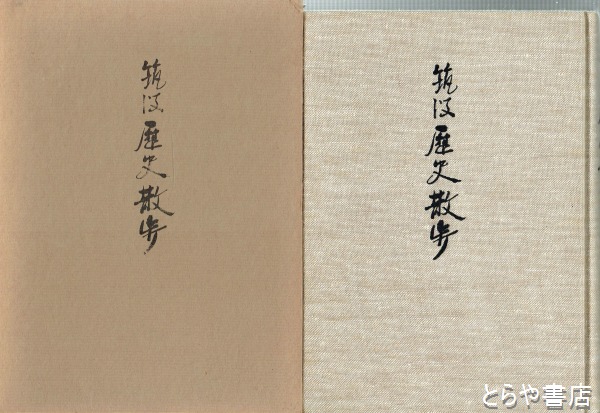 筑後歴史散歩
筑後歴史散歩
とらや書店